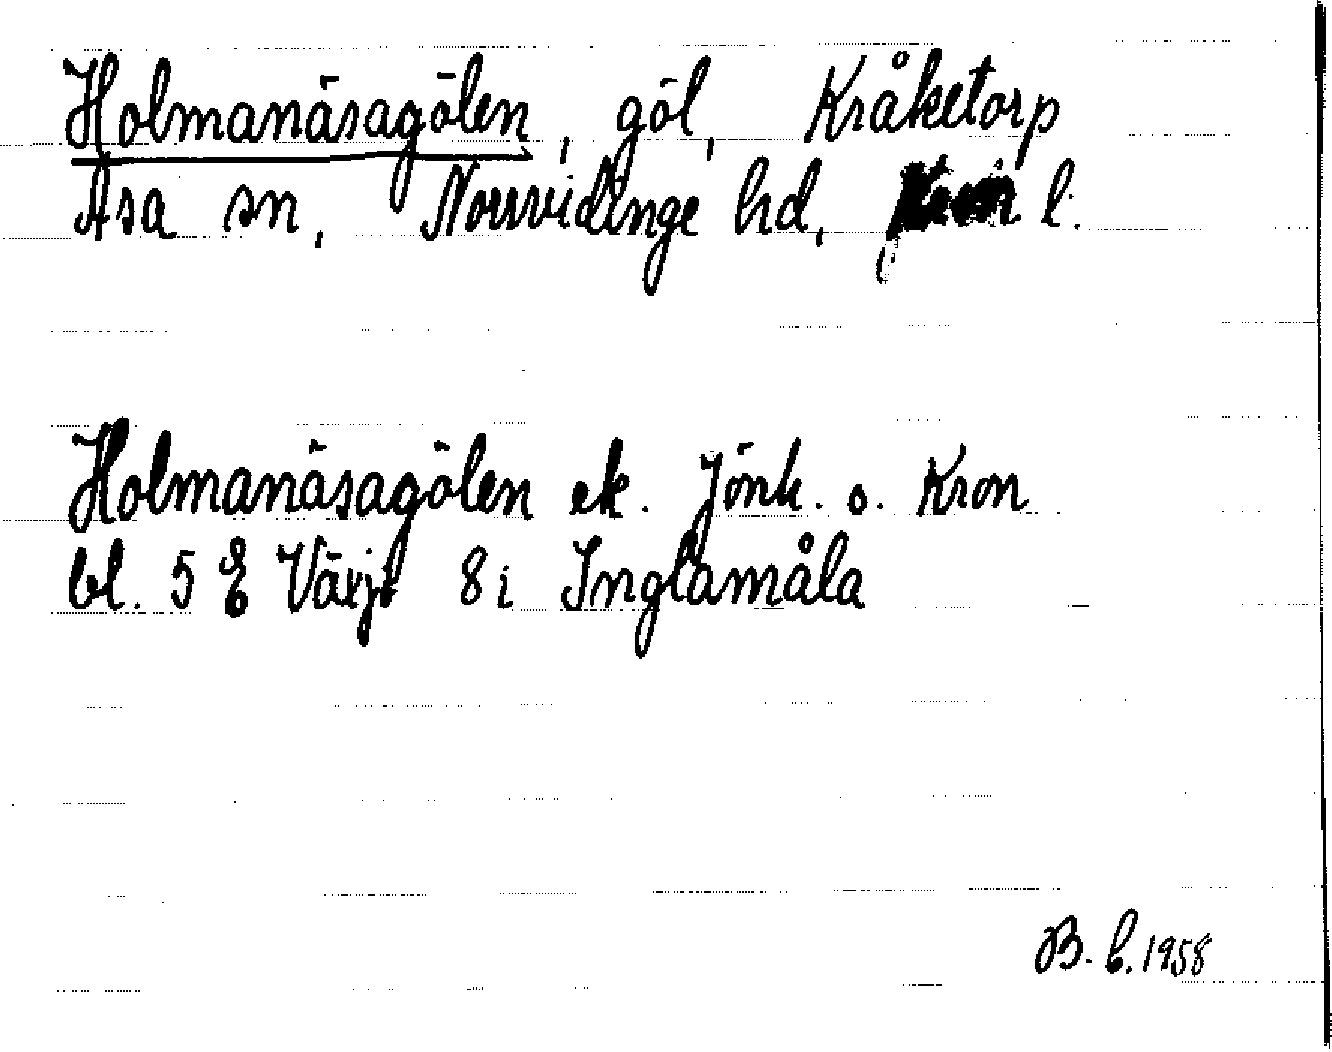 Holmanäsagölen, göl, Kråketorp
Asa sn, Norrvidinge hd, l.
Holmanäsagölen ek. Jönk. o. Kron
bl. 5 E Växjö 8 i Inglamåla
B. E. 1958